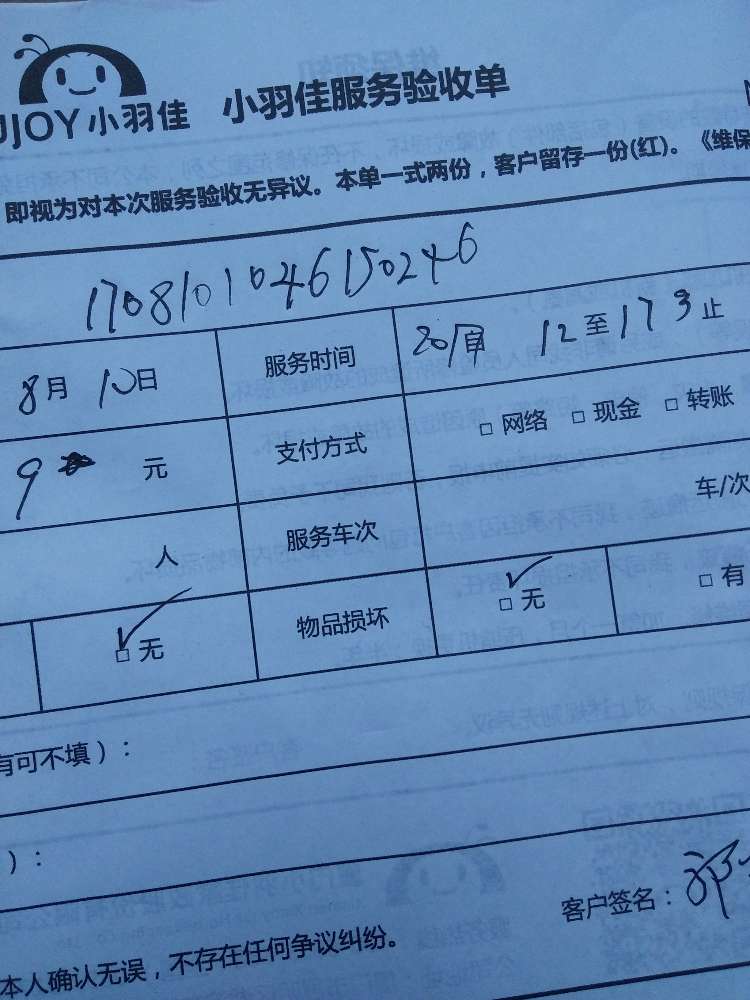 JJOY小羽佳 小羽佳服务验收单
即视为对本次服务验收无异议。本单一式两份，客户留存一份(红)。《维保
1708101046150246
8月10日 服务时间 12至17 止
9 元 支付方式 □ 网络 □ 现金 □ 转账
人 服务车次 车/次
□ 无 物品损坏 □ 无 □ 有
有可不填）：
）：
客户签名：
本人确认无误，不存在任何争议纠纷。